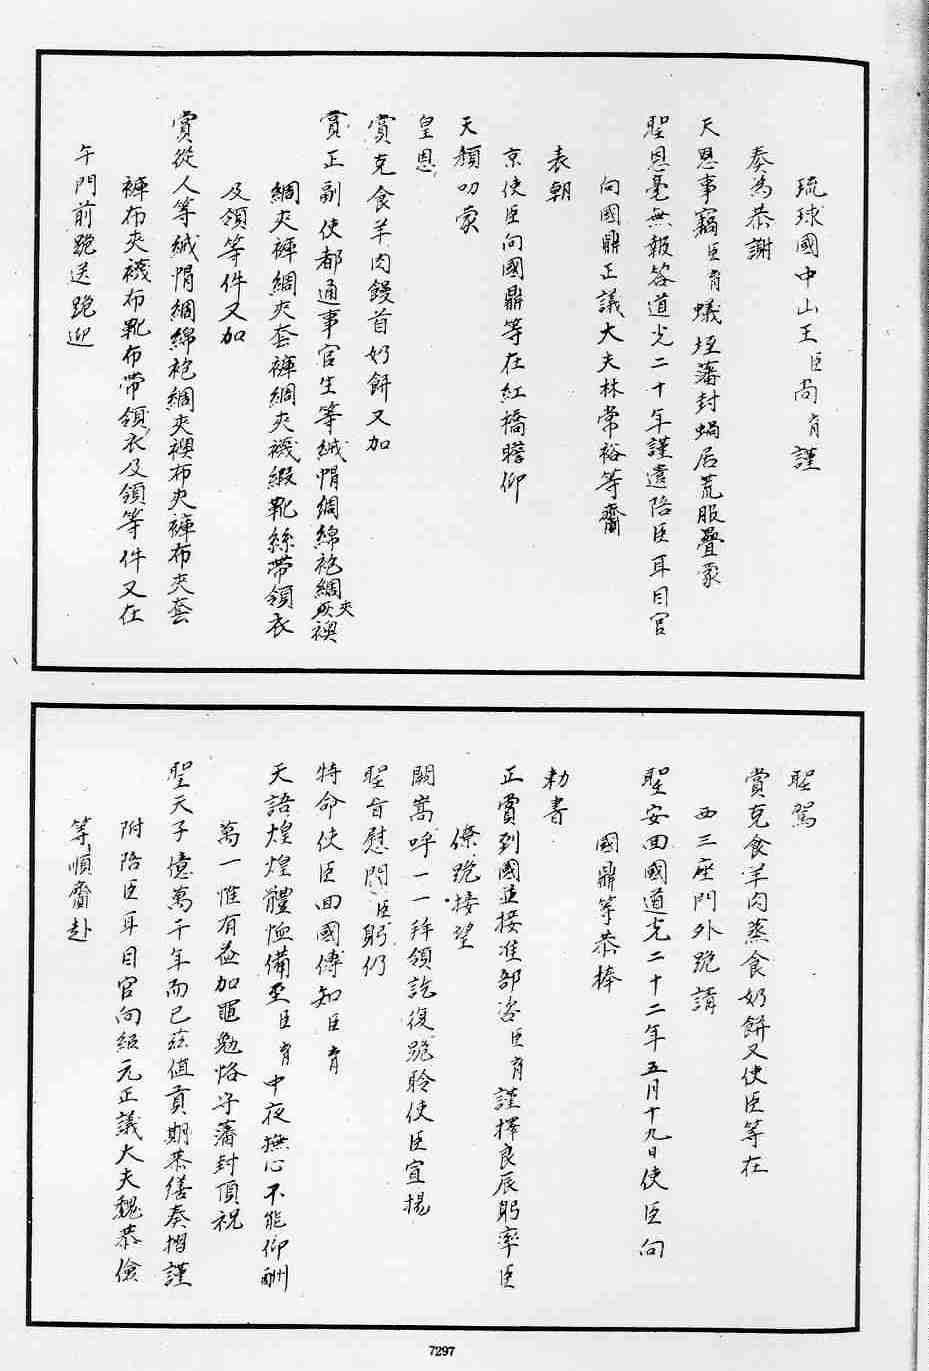 琉球國中山王臣尚育謹
奏為恭謝
天恩事竊臣育蟻垤藩封蝸居荒服疊蒙
聖恩毫無報答道光二十年謹遣陪臣耳目官
向國鼎正議大夫林常裕等齎
表朝
京使臣向國鼎等在紅橋瞻仰
天顏叨蒙
皇恩
賞克食羊肉饅首奶餅又加
賞正副使都通事官生等絨帽綢綿袍綢夾襖
綢夾褲綢夾套褲綢夾襪緞靴絲帶領衣
及領等件又加
賞從人等絨帽綢綿袍綢夾襖布夾褲布夾套
褲布夾襪布靴布帶領衣及領等件又在
午門前跪送跪迎
聖駕
賞克食羊肉蒸食奶餅又使臣等在
西三座門外跪請
聖安回國道光二十二年五月十九日使臣向
國鼎等恭捧
勅書
正賞到國並接准部咨臣育謹擇良辰躬率臣
僚跪接望
闕嵩呼一一拜領訖復跪聆使臣宣揚
聖旨慰問臣躬仍
特命使臣回國傳知臣育
天語煌煌體恤備至臣育中夜撫心不能仰酬
萬一惟有益加黽勉恪守藩封頂祝
聖天子億萬千年而已茲值貢期恭繕奏摺謹
附陪臣耳目官向紹元正議大夫魏恭儉
等順齎赴
7297